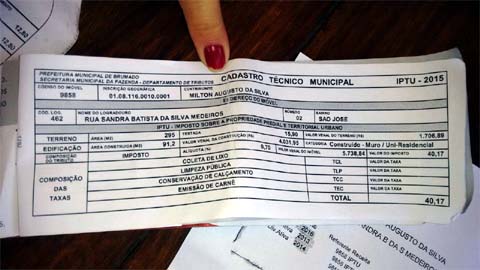 PREFEITURA MUNICIPAL DE BRUMADO
SECRETARIA MUNICIPAL DA FAZENDA - DEPARTAMENTO DE TRIBUTOS
CADASTRO TÉCNICO MUNICIPAL IPTU - 2015
CÓDIGO DO IMÓVEL INSCRIÇÃO GEOGRÁFICA CONTRIBUINTE
9858 01.08.116.0010.0001 MILTON AUGUSTO DA SILVA
ENDEREÇO DO IMÓVEL
COD. LOG. NOME DO LOGRADOURO NÚMERO BAIRRO
462 RUA SANDRA BATISTA DA SILVA MEDEIROS 02 SAO JOSE
IPTU - IMPOSTO SOBRE A PROPRIEDADE PREDIAL E TERRITORIAL URBANO
TERRENO ÁREA (M2) 295 TESTADA 15,90 VALOR VENAL DO TERRENO (R$) 1.706,89
EDIFICAÇÃO ÁREA CONSTRUÍDA (M2) 91,2 VALOR VENAL DA CONSTRUÇÃO (R$) 4.031,95 CATEGORIA Construído - Muro / Uni-Residencial
COMPOSIÇÃO DO TRIBUTO IMPOSTO ALÍQUOTA (%) 0,70 5.738,84 VALOR DO IMPOSTO 40,17
COMPOSIÇÃO DAS TAXAS
COLETA DE LIXO TCL VALOR DA TAXA
LIMPEZA PÚBLICA TLP VALOR DA TAXA
CONSERVAÇÃO DE CALÇAMENTO TCC VALOR DA TAXA
EMISSÃO DE CARNÊ TEC VALOR DA TAXA
TOTAL 40,17
12,80
12,80
AUGUSTO DA SILVA
ANDRA B DA S MEDEIR
Referente Receita
9858 IPTU
9858 IPTU
2014